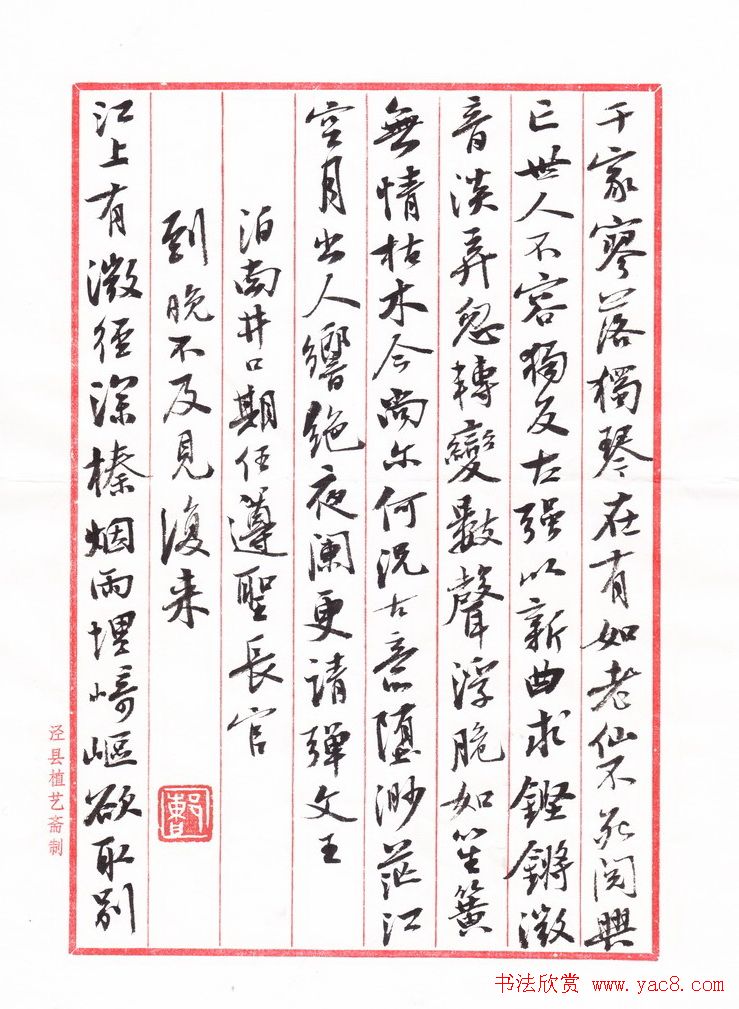 千家寥落獨琴在有如老仙不死閲興
亡世人不容獨反古强以新曲求鏗鏘微
音淡弄忽轉變數聲浮脆如笙簧
無情枯木今尚尔何況古意墮渺茫江
空月出人響絕夜闌更請彈文王
泊南井口期任遵聖長官
到晚不及見復来
江上有微徑深榛烟雨埋崎嶇欲取别
泾县植艺斋制
书法欣赏 www.yac8.com